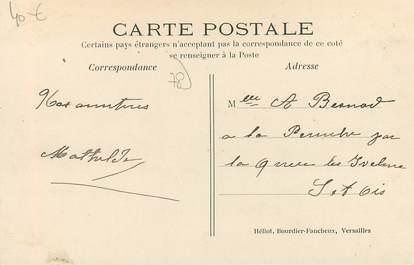 40 €
CARTE POSTALE
Certains pays étrangers n'acceptant pas la correspondance de ce coté
se renseigner à la Poste
Correspondance
78
Adresse
Nos amitiés
Mathilde
Melle A Besnard
a la Perruche par
la Queue les Yveline
S et Ois
Héliot, Bourdier-Faucheux, Versailles